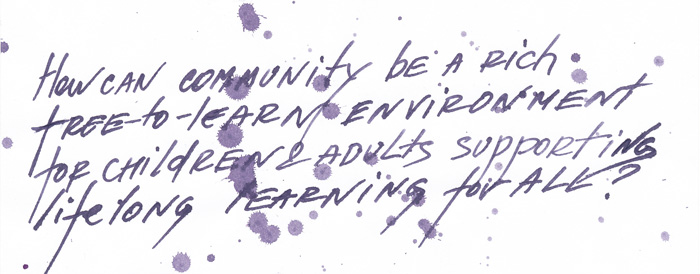 How can community be a rich
free-to-learn environment
for children & adults supporting
lifelong learning for all?